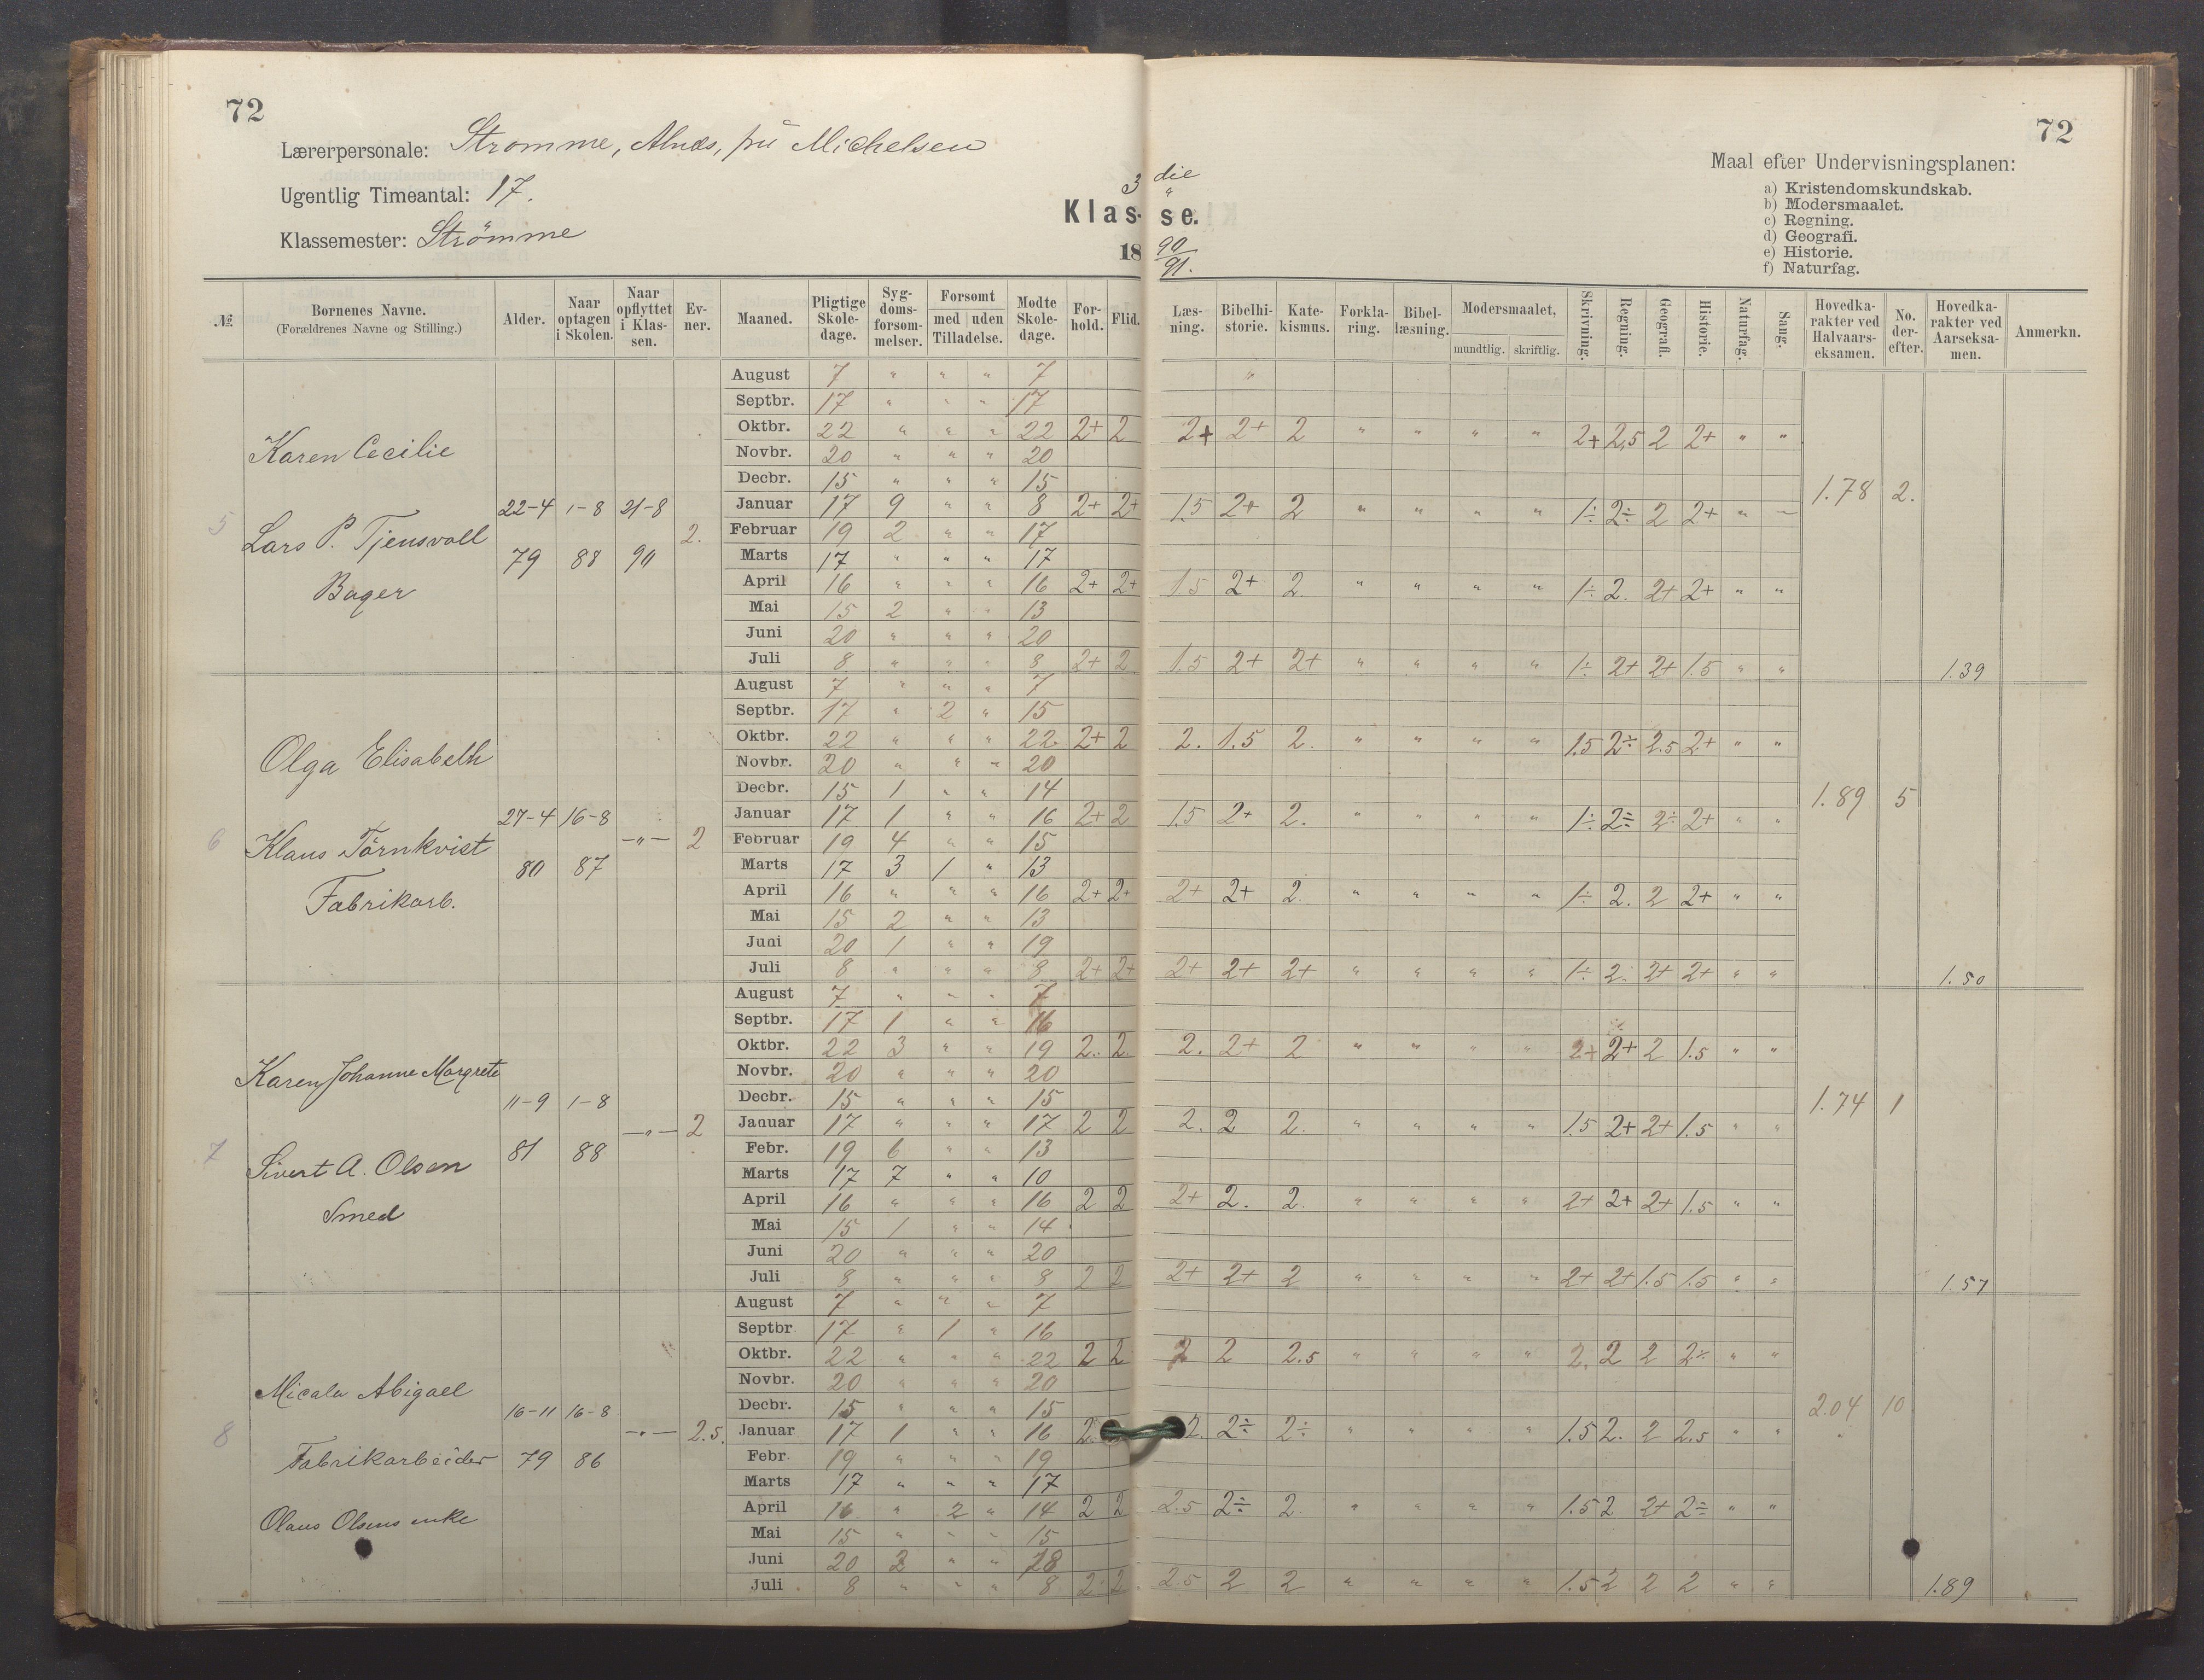 72
Lærerpersonale: Strømme, Alnæs, frk Michelsen
Ugentlig Timeantal: 17.
Klassemester: Strømme
3 die
Klas- se.
18 90/91.
72
Maal efter Undervisningsplanen:
a) Kristendomskundskab.
b) Modersmaalet.
c) Regning.
d) Geografi.
e) Historie.
f) Naturfag.
№ | Bornenes Navne. (Forældrenes Navne og Stilling.) | Alder. | Naar optagen i Skolen. | Naar opflyttet i Klassen. | Evner. | Maaned. | Pligtige Skoledage. | Sygdomsforsommelser. | Forsomt med | uden Tilladelse. | Modte Skoledage. | Forhold. | Flid. | Læsning. | Bibelhistorie. | Katekismus. | Forklaring. | Bibellæsning. | Modersmaalet, mundtlig. | skriftlig. | Skrivning. | Regning. | Geografi. | Historie. | Naturfag. | Sang. | Hovedkarakter ved Halvaarseksamen. | No. derefter. | Hovedkarakter ved Aarseksamen. | Anmerkn.
5 Karen Cecilie
Lars P. Tjensvoll
Bager
22-4 79 | 1-8 88 | 21-8 90 | 2.
August 7 " " " 7 "
Septbr. 17 " " " 17
Oktbr. 22 " " " 22 2+ 2 2+ 2+ 2 " " " " 2+ 2,5 2 2+ " "
Novbr. 20 " " " 20
Decbr. 15 " " " 15
Januar 17 9 " " 8 2+ 2+ 1.5 2+ 2 " " " " 1÷ 2÷ 2 2+ " " 1.78 2.
Februar 19 2 " " 17
Marts 17 " " " 17
April 16 " " " 16 2+ 2+ 1.5 2+ 2. " " " " 1÷ 2. 2+ 2+ " "
Mai 15 2 " " 13
Juni 20 " " " 20
Juli 8 " " " 8 2+ 2 1.5 2+ 2+ " " " " 1÷ 2+ 2+ 1.5 " " 1.39
6 Olga Elisabeth
Klaus Törnkvist
Fabrikarb.
27-4 80 | 16-8 87 | -"- | 2
August 7 " " " 7
Septbr. 17 " 2 " 15
Oktbr. 22 " " " 22 2+ 2 2. 1.5 2. " " " " 1.5 2÷ 2.5 2+ " "
Novbr. 20 " " " 20
Decbr. 15 1 " " 14
Januar 17 1 " " 16 2+ 2 1.5 2+ 2. " " " " 1÷ 2÷ 2÷ 2+ " " 1.89 5
Februar 19 4 " " 15
Marts 17 3 1 " 13
April 16 " " " 16 2+ 2+ 2+ 2+ 2. " " " " 1÷ 2. 2 2+ " "
Mai 15 2 " " 13
Juni 20 1 " " 19
Juli 8 " " " 8 2+ 2+ 2+ 2+ 2+ " " " " 1÷ 2. 2+ 2+ " " 1.50
7 Karen Johanne Margrete
Sivert A. Olsen
Smed
11-9 81 | 1-8 88 | -"- | 2
August 7 " " " 7
Septbr. 17 1 " " 16
Oktbr. 22 3 " " 19 2. 2. 2. 2+ 2 " " " " 2+ 2+ 2 1.5 " "
Novbr. 20 " " " 20
Decbr. 15 " " " 15
Januar 17 " " " 17 2 2 2. 2 2. " " " " 1.5 2+ 2+ 1.5 " " 1.74 1
Febr. 19 6 " " 13
Marts 17 7 " " 10
April 16 " " " 16 2 2 2+ 2. 2. " " " " 2+ 2+ 2+ 1.5 " "
Mai 15 1 " " 14
Juni 20 " " " 20
Juli 8 " " " 8 2 2 2+ 2+ 2 " " " " 2+ 2+ 1.5 1.5 " " 1.57
8 Micala Abigael
Fabrikarbeider
Olaus Olsens enke
16-11 79 | 16-8 86 | -"- | 2.5.
August 7 " " " 7
Septbr 17 " 1 " 16
Oktbr. 22 " " " 22 2 2 2 2 2.5 " " " " 2. 2 2 2÷ " "
Novbr. 20 " " " 20
Decbr. 15 " " " 15
Januar 17 1 " " 16 2. 2. 2÷ 2÷ " " " " 1.5 2. 2 2.5 " " 2.04 10
Febr. 19 " " " 19
Marts 17 " " " 17
April 16 " 2 " 14 2 2 2.5 2÷ 2. " " " " 1.5 2 2+ 2÷ " "
Mai 15 " " " 15
Juni 20 2 " " 18
Juli 8 " " " 8 2 2 2.5 2 2 " " " " 1.5 2 2 2 " " 1.89